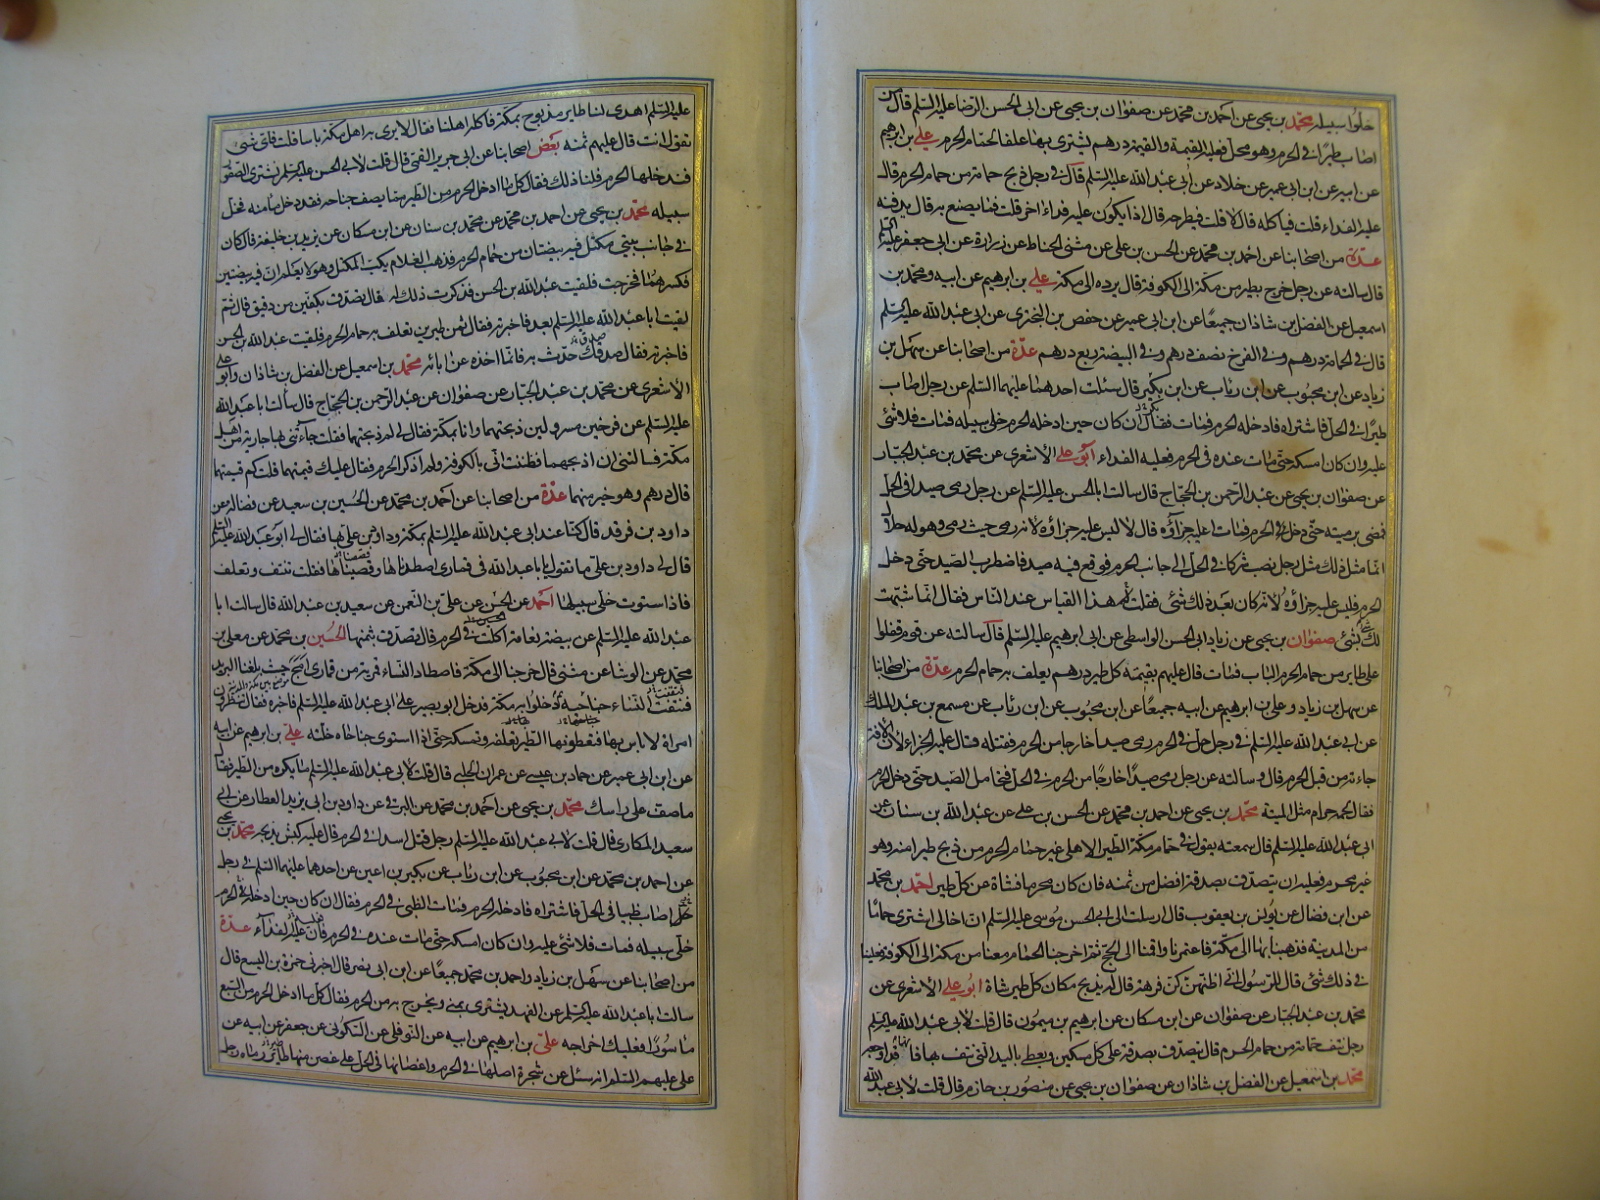 خلوا سبيله محمد بن يحيى عن احمد بن محمد عن صفوان بن يحيى عن ابى الحسن الرضا عليه السلم قال من
اصاب طيرا فى الحرم وهو محل فعليه القيمة والقيمة درهم يشترى بها علفا لحمام الحرم على بن ابرهيم
عن ابيه عن ابن ابى عمير عن خلاد عن ابى عبد الله عليه السلم قال فى رجل ذبح حمامة من حمام الحرم قال
عليه الفداء قلت فياكله قال لا قلت فيطرحه قال اذا يكون عليه فداء اخر قلت فما يصنع به قال يدفنه
عدة من اصحابنا عن احمد بن محمد عن الحسن بن على عن مثنى الحناط عن زرارة عن ابى جعفر عليه السلم
قال سالته عن رجل خرج بطير من مكة الى الكوفة قال يرده الى مكة على بن ابرهيم عن ابيه ومحمد بن
اسمعيل عن الفضل بن شاذان جميعا عن ابن ابى عمير عن حفص بن البخترى عن ابى عبد الله عليه السلم
قال فى الحمامة درهم وفى الفرخ نصف درهم وفى البيضة ربع درهم عدة من اصحابنا عن سهل بن
زياد عن ابن محبوب عن ابن رئاب عن ابن بكير قال سئلت احدهما عليهما السلم عن رجل اصاب
طيرا فى الحل فاشتراه فادخله الحرم فمات فقال ان كان حين ادخله الحرم خلى سبيله فمات فلا شئ
عليه وان كان امسكه حتى مات عنده فى الحرم فعليه الفداء ابو على الاشعرى عن محمد بن عبد الجبار
عن صفوان بن يحيى عن عبد الرحمن بن الحجاج قال سالت ابا الحسن عليه السلم عن رجل رمى صيدا فى الحل
فمضى برميته حتى دخل الحرم فمات اعليه جزاؤه قال لا ليس عليه جزاؤه لانه رمى حيث رمى وهو له حلال
انما مثل ذلك مثل رجل نصب شركا فى الحل الى جانب الحرم فوقع فيه صيد فاضطرب الصيد حتى دخل
الحرم فليس عليه جزاؤه لانه كان بعد ذلك شئ فقلت هذا القياس عند الناس فقال انما شبهت
لك شئ بشئ صفوان بن يحيى عن زياد ابى الحسن الواسطى عن ابى ابرهيم عليه السلم قال سالته عن قوم قفلوا
على طاير من حمام الحرم الباب فمات قال عليهم بقيمة كل طير درهم يعلف به حمام الحرم عدة من اصحابنا
عن سهل بن زياد وعلى بن ابرهيم عن ابيه جميعا عن ابن محبوب عن ابن رئاب عن مسمع بن عبد الملك
عن ابى عبد الله عليه السلم فى رجل حل فى الحرم رمى صيدا خارجا من الحرم فقتله فقال عليه الجزاء لان الافة
جاءته من قبل الحرم قال وسالته عن رجل رمى صيدا خارجا من الحرم فى الحل فتحامل الصيد حتى دخل الحرم
فقال لحمه حرام مثل الميتة محمد بن يحيى عن احمد بن محمد عن الحسن بن على عن عبد الله بن سنان عن
ابى عبد الله عليه السلم قال سمعته يقول فى حمام مكة الطير الاهلى غير حمام الحرم من ذبح طيرا منه وهو
غير محرم فعليه ان يتصدق بصدقة افضل من ثمنه فان كان محرما فشاة عن كل طير احمد بن محمد
عن ابن فضال عن يونس بن يعقوب قال ارسلت الى ابى الحسن موسى عليه السلم ان اخا لى اشترى حماما
من المدينة فذهبنا بها الى مكة فاعتمرنا واقمنا الى الحج ثم اخرجنا الحمام معنا من مكة الى الكوفة فعلينا
فى ذلك شئ قال للرسول انى اظنهن كن فرهة قال له يذبح مكان كل طير شاة ابو على الاشعرى عن
محمد بن عبد الجبار عن صفوان عن ابن مسكان عن ابرهيم بن ميمون قال قلت لابى عبد الله عليه السلم
رجل نتف حمامة من حمام الحرم قال يتصدق بصدقة على كل مسكين ويعطى باليد التى نتف بها فانه قد اوجعه
محمد بن اسمعيل عن الفضل بن شاذان عن صفوان بن يحيى عن منصور بن حازم قال قلت لابى عبد الله
عليه السلم اهدى لنا طاير مذبوح بمكة فاكله اهلنا فقال لا يرى به اهل مكة باسا قلت فاى شئ
تقول انت قال عليهم ثمنه بعض اصحابنا عن ابى جرير القمى قال قلت لابى الحسن عليه السلم نشترى الصقور
فندخلها الحرم فلنا ذلك فقال كل ما ادخل الحرم من الطير مما يصف جناحه فقد دخل مامنه فخل
سبيله محمد بن يحيى عن احمد بن محمد عن محمد بن سنان عن ابن مسكان عن يزيد بن خليفة قال كان
فى جانب بيتى مكتل فيه بيضتان من حمام الحرم فذهب الغلام يكب المكتل وهو لا يعلم ان فيه بيضتين
فكسرهما فخرجت فلقيت عبد الله بن الحسن فذكرت ذلك له قال تصدق بكفين من دقيق قال ثم
لقيت ابا عبد الله عليه السلم بعد فاخبرته فقال ثمن طيرين تعلف به حمام الحرم فلقيت عبد الله بن الحسن
فاخبرته فقال صدقك حدث به فانما اخذه عن ابائه محمد بن اسمعيل عن الفضل بن شاذان وابو على
الاشعرى عن محمد بن عبد الجبار عن صفوان عن عبد الرحمن بن الحجاج قال سالت ابا عبد الله
عليه السلم عن فرخين مسرولين ذبحتهما وانا بمكة فقال لى لم ذبحتهما فقلت جاءتنى بهما جارية من اهل
مكة فسالتنى ان اذبحهما فظننت انى بالكوفة ولم اذكر الحرم فقال عليك قيمتهما قلت كم قيمتهما
قال درهم وهو خير منهما عدة من اصحابنا عن احمد بن محمد عن الحسين بن سعيد عن فضالة عن
داود بن فرقد قال كنا عند ابى عبد الله عليه السلم بمكة وداود بن على بها فقال لى ابو عبد الله عليه السلم
قال لى داود بن على ما تقول يا ابا عبد الله فى قمارى اصطدناها وقصيناها فقلت تنتف وتعلف
فاذا استوت خلى سبيلها احمد عن الحسن عن على بن النعمن عن سعيد بن عبد الله قال سالت ابا
عبد الله عليه السلم عن بيضة نعامة اكلت فى الحرم قال تصدق بثمنها الحسين بن محمد عن معلى بن
محمد عن الوشا عن مثنى قال خرجنا الى مكة فاصطاد النساء قمرية من قمارى امج حيث بلغنا البريد
فنتفت النساء جناحيه ثم دخلوا به مكة فدخل ابو بصير على ابى عبد الله عليه السلم فاخبره فقال تنظرون
امراة لا باس بها فتعطونها الطير تعلفه وتمسكه حتى اذا استوى جناحاه خلته على بن ابرهيم عن ابيه
عن ابن ابى عمير عن حماد بن عيسى عن عمران الحلبى قال قلت لابى عبد الله عليه السلم ما يكره من الطير فقال
ما صف على راسك محمد بن يحيى عن احمد بن محمد عن البرقى عن داود بن ابى يزيد العطار عن ابى
سعيد المكارى قال قلت لابى عبد الله عليه السلم رجل قتل اسدا فى الحرم قال عليه كبش يذبحه محمد بن يحيى
عن احمد بن محمد عن ابن محبوب عن ابن رئاب عن بكير بن اعين عن احدهما عليهما السلم فى رجل
اصاب ظبيا فى الحل فاشتراه فادخله الحرم فمات الظبى فى الحرم فقال ان كان حين ادخله الحرم
خلى سبيله فمات فلا شئ عليه وان كان امسكه حتى مات عنده فى الحرم فان عليه الفداء عدة
من اصحابنا عن سهل بن زياد واحمد بن محمد جميعا عن ابن ابى نصر قال اخبرنى حمزة بن اليسع قال
سالت ابا عبد الله عليه السلم عن الفهد يشترى بمنى ويخرج به من الحرم فقال كل ما ادخل الحرم من السبع
ماسورا فعليك اخراجه على بن ابرهيم عن ابيه عن النوفلى عن السكونى عن جعفر عن ابيه عن
على عليهم السلم انه سئل عن شجرة اصلها فى الحرم واغصانها فى الحل على غصن منها طاير رماه رجل